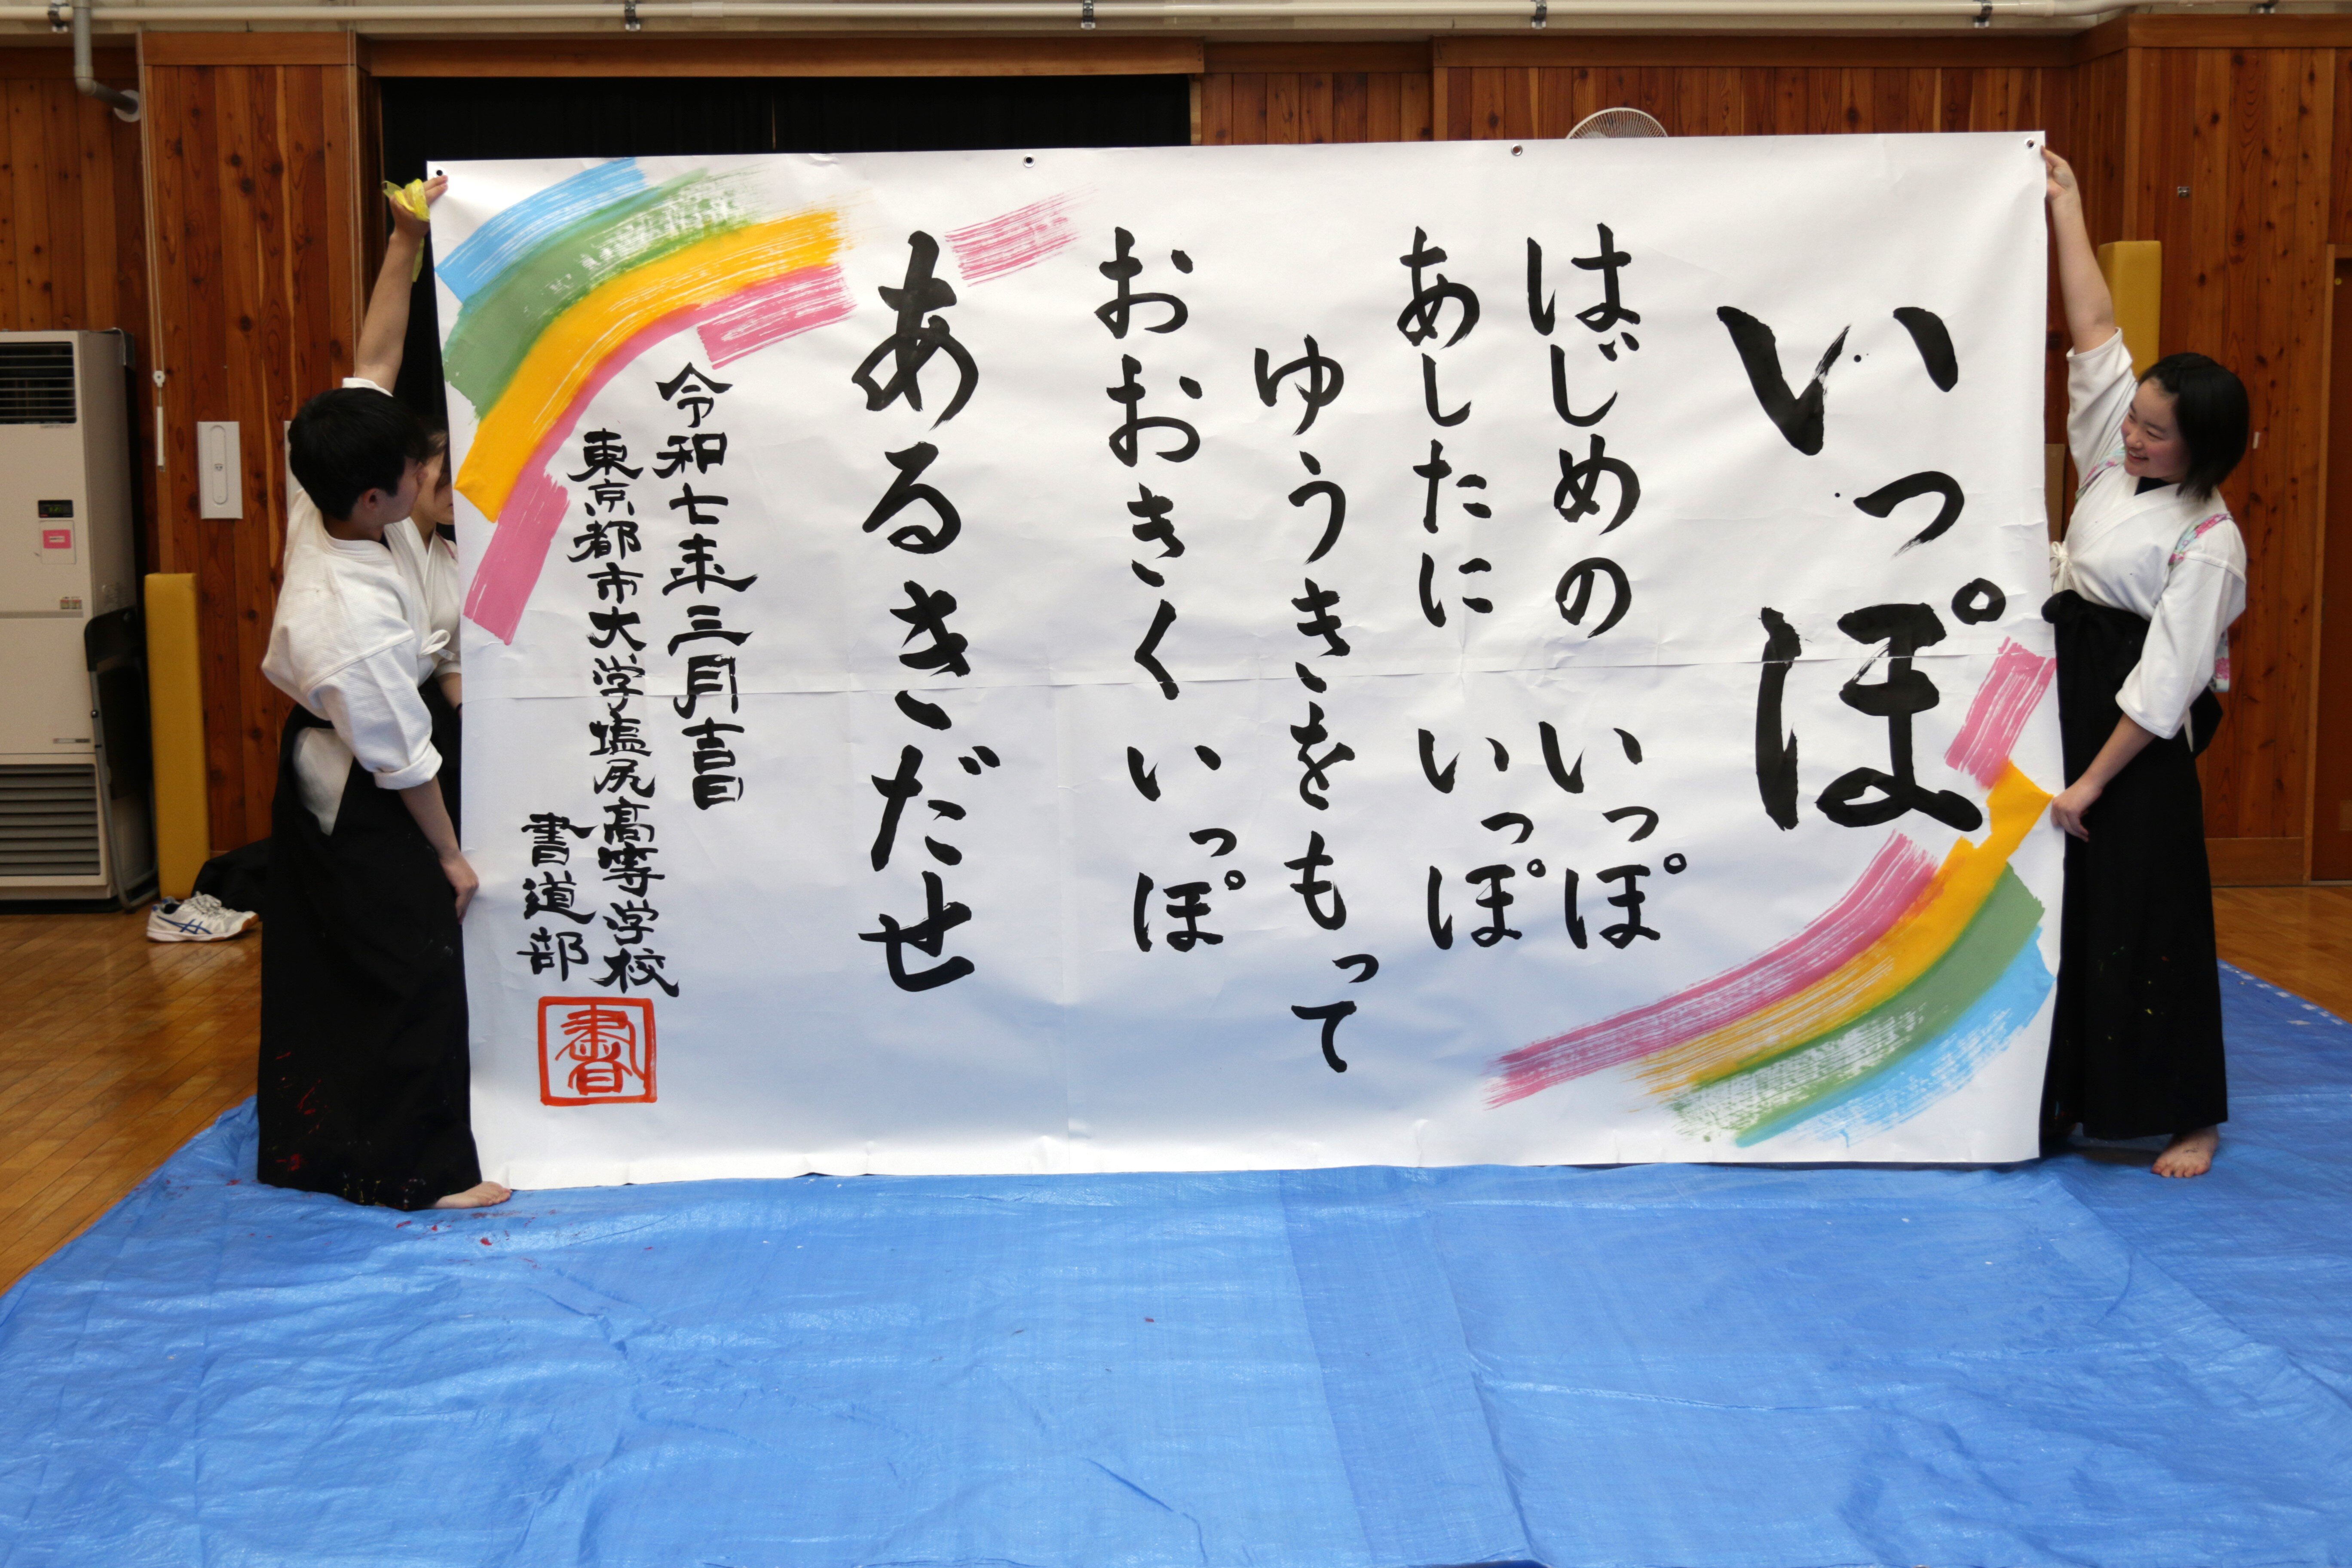 いっぽ
はじめの いっぽ
あしたに いっぽ
ゆうきをもって
おおきく いっぽ
あるきだせ
令和七年三月吉日
東京都市大学塩尻高等学校
書道部
書